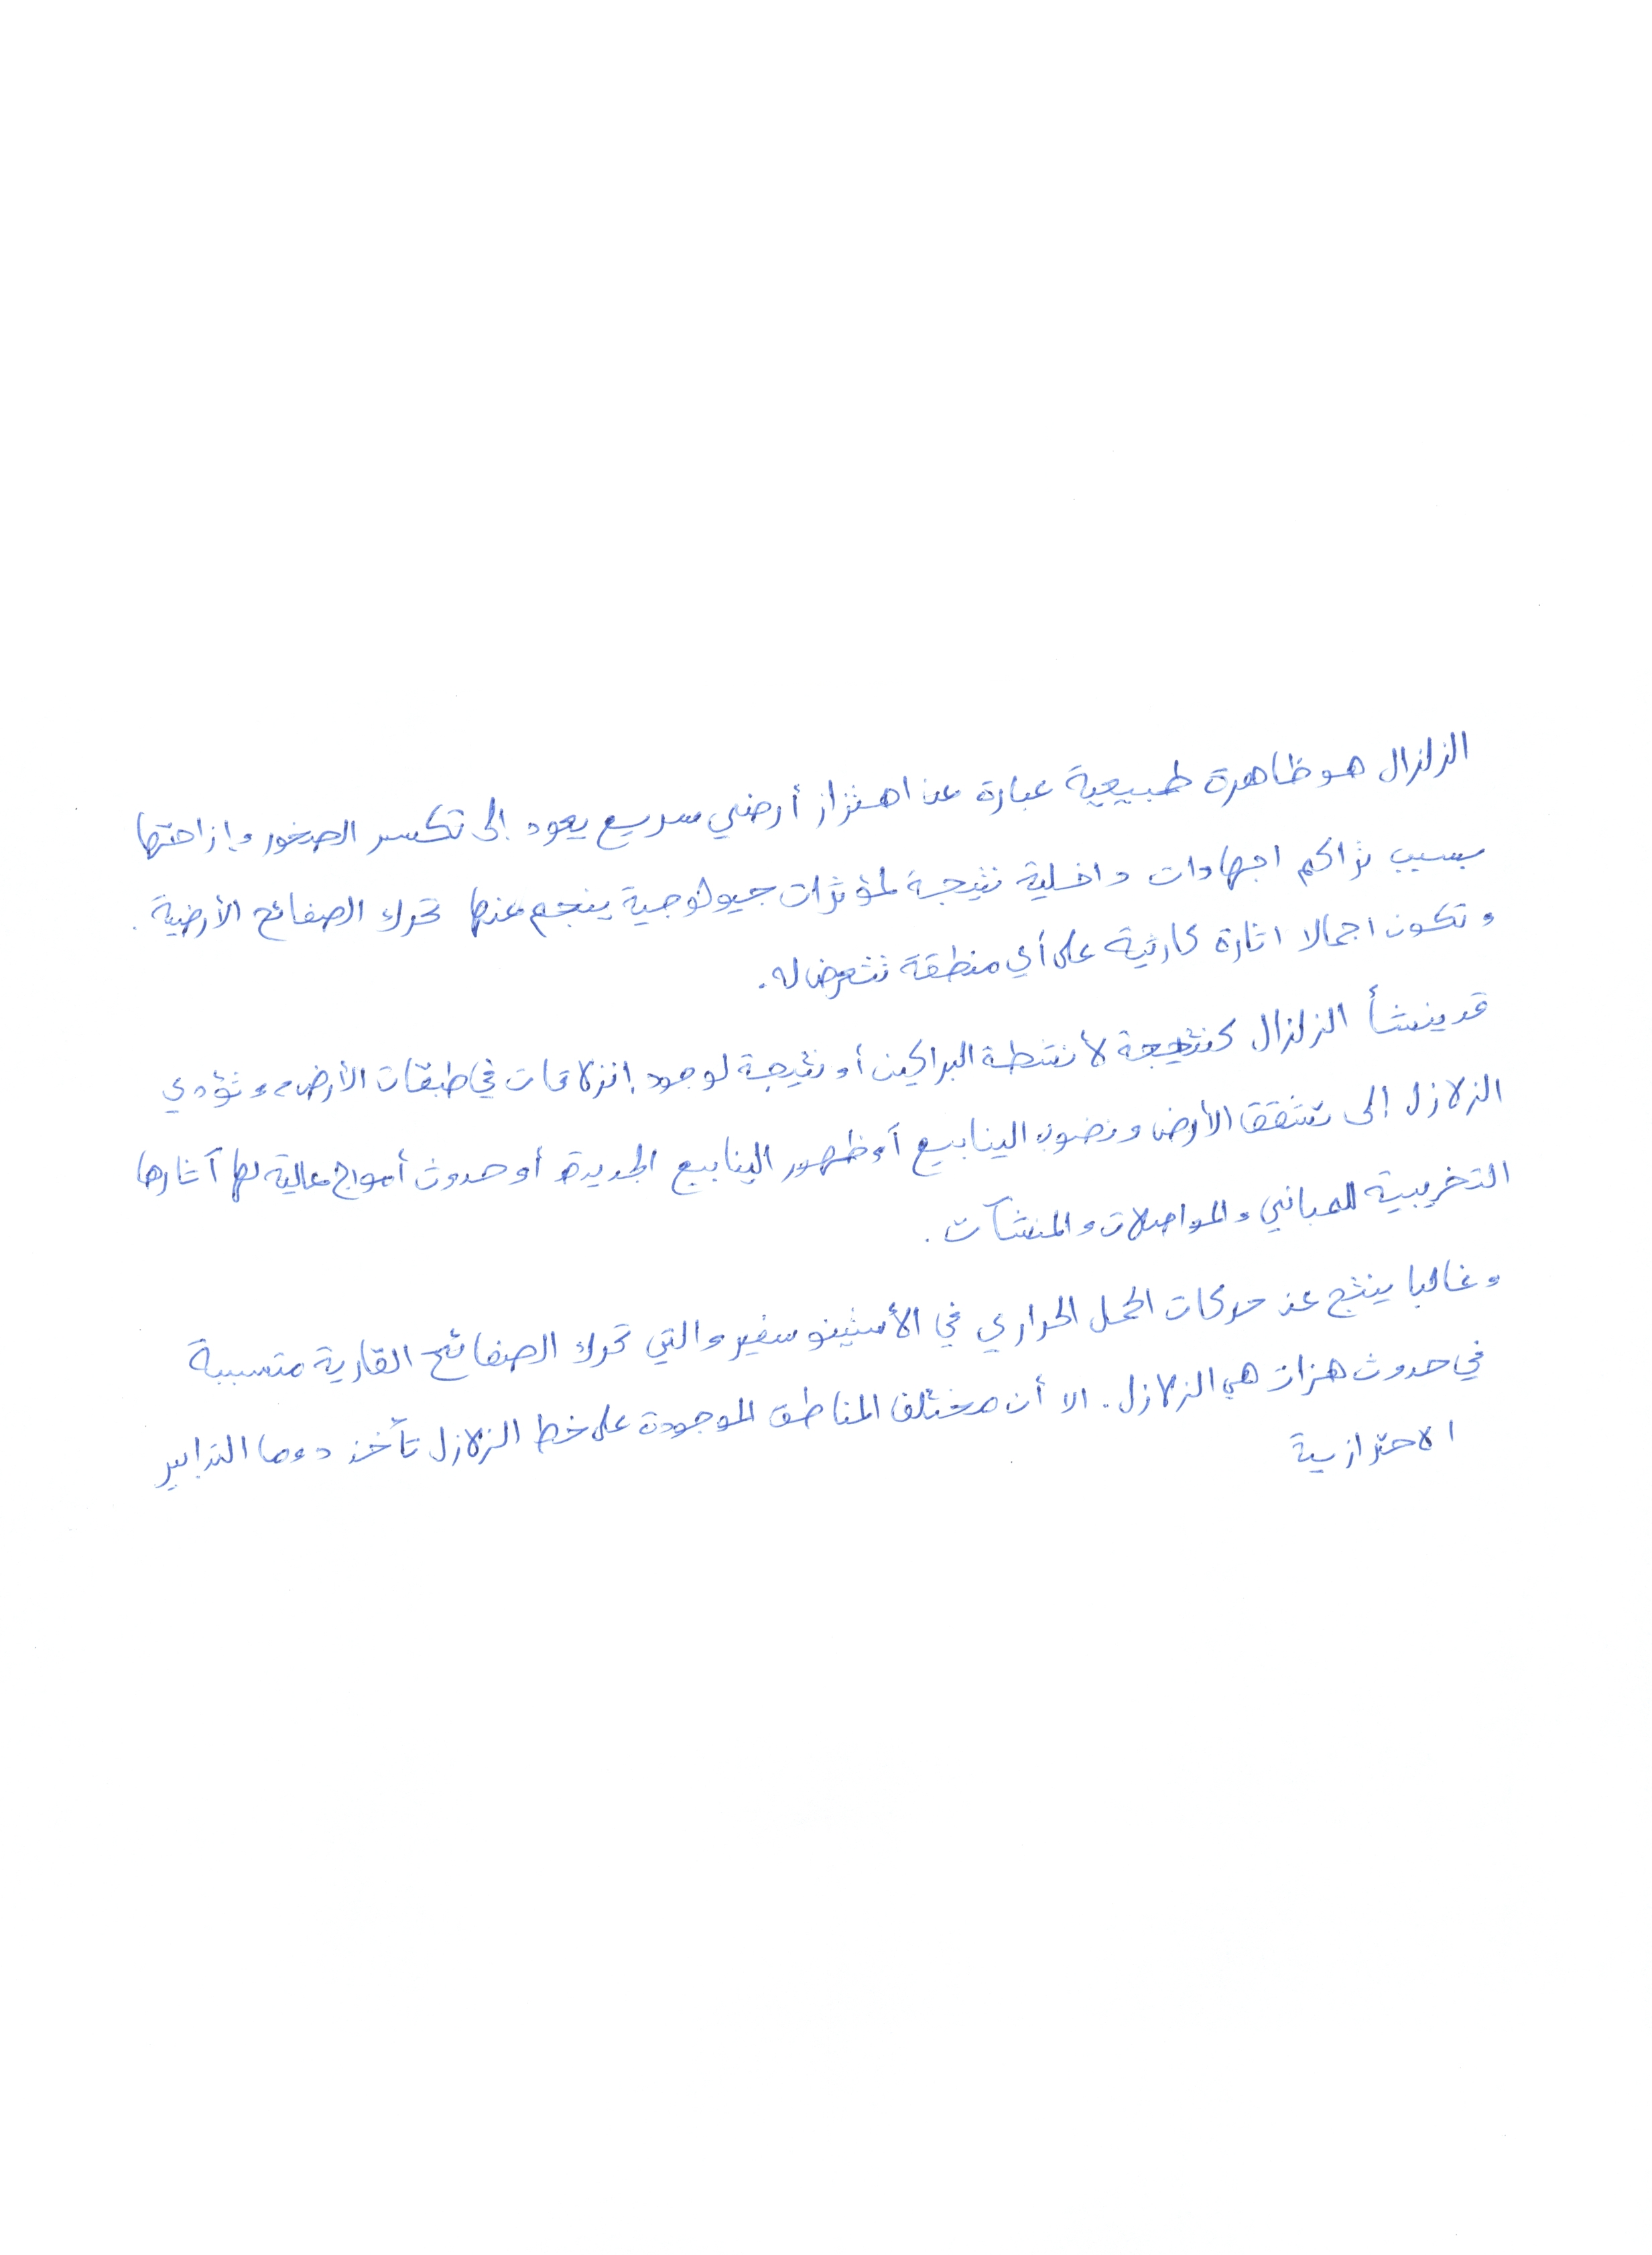 الزلزال هو ظاهرة طبيعية عبارة عن اهتزاز أرضي سريع يعود إلى تكسر الصخور وإزاحتها
بسبب تراكم اجهادات داخلية نتيجة لمؤثرات جيولوجية ينجم عنها تحرك الصفائح الأرضية.
وتكون اجمالا اثارة كارثية على أي منطقة تتعرض له.
قد ينشأ الزلزال كنتيجة لأنشطة البراكين أو نتيجة لوجود إنزلاقات في طبقات الأرض، وتؤدي
الزلازل إلى تشقق الأرض ونضوب الينابيع أو ظهور الينابيع الجديدة أو حدوث أمواج عالية لها آثارها
التخريبية للمباني والمواصلات والمنشآت.
وغالبا ينتج عن حركات الحمل الحراري في الأستينوسفير والتي تحرك الصفائح القارية متسببة
في حدوث هزات هي الزلازل. الا أن مختلف المناطق الموجودة على خط الزلازل تأخذ دوما التدابير
الاحترازية